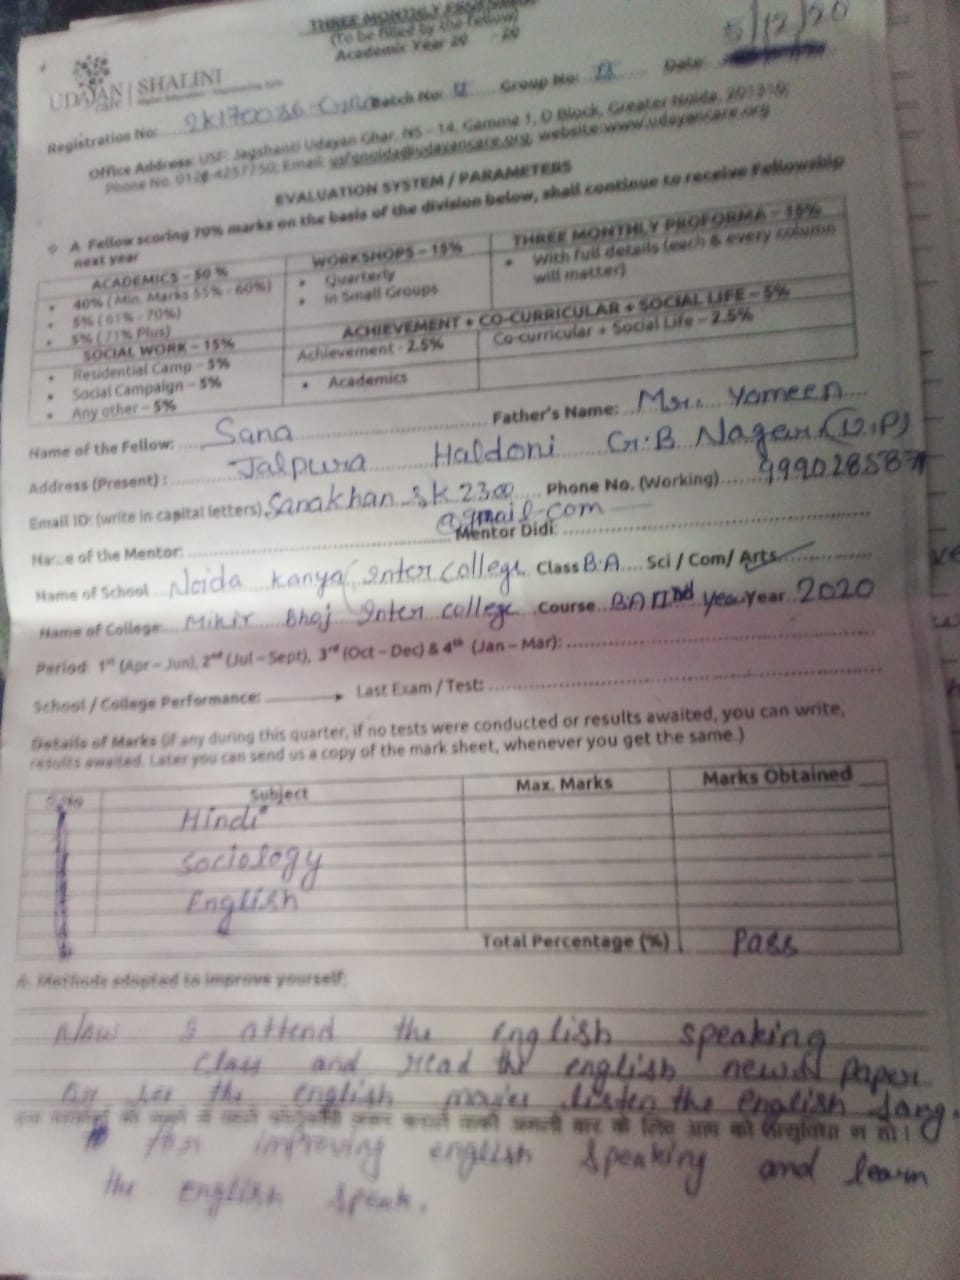 THREE MONTHLY PROFORMA
(To be filled by the Fellow)
Academic Year 20 - 20
5/12/20
UDAYAN CARE | SHALINI
Registration No: Batch No: Group No: Date:
Office Address: USF: Jagshanti Udayan Ghar, NS - 14, Gamma 1, D Block, Greater Noida,
Phone No. 0120-4257750; Email: usfgnoida@udayancare.org, website:www.udayancare.org
EVALUATION SYSTEM / PARAMETERS
A Fellow scoring 70% marks on the basis of the division below, shall continue to receive Fellowship
next year
ACADEMICS – 50 %
• 40% (Min. Marks 55% - 60%)
• 5% (61% - 70%)
• 5% (71% Plus)
SOCIAL WORK – 15%
• Residential Camp – 5%
• Social Campaign – 5%
• Any other – 5%
WORKSHOPS – 15%
• Quarterly
• In Small Groups
THREE MONTHLY PROFORMA – 15%
• With full details (each & every column
will matter)
ACHIEVEMENT + CO-CURRICULAR + SOCIAL LIFE – 5%
Achievement - 2.5%
Co-curricular + Social Life – 2.5%
• Academics
Name of the Fellow: Sana Father's Name: Mr. Yameen
Address (Present) : Jalpura Haldoni G.B Nagar (U.P)
Email ID: (write in capital letters) Sanakhan sk 2300 Phone No. (Working)
@gmail.com
Name of the Mentor: Mentor Didi:
Name of School Noida kanya Inter college Class B.A Sci / Com/ Arts
Name of College: Mihir Bhoj Inter college Course BA IInd year Year 2020
Period 1st (Apr – Jun), 2nd (Jul – Sept), 3rd (Oct – Dec) & 4th (Jan – Mar):
School / College Performance: Last Exam / Test:
Details of Marks (if any during this quarter, if no tests were conducted or results awaited, you can write,
results awaited. Later you can send us a copy of the mark sheet, whenever you get the same.)
S.No Subject Max. Marks Marks Obtained
Hindi
Sociology
English
Total Percentage (%) Pass
A. Methods adopted to improve yourself.
Now I attend the English speaking
class and read the english news paper
the english movies listen the english song
for improving english speaking and learn
the english speak.